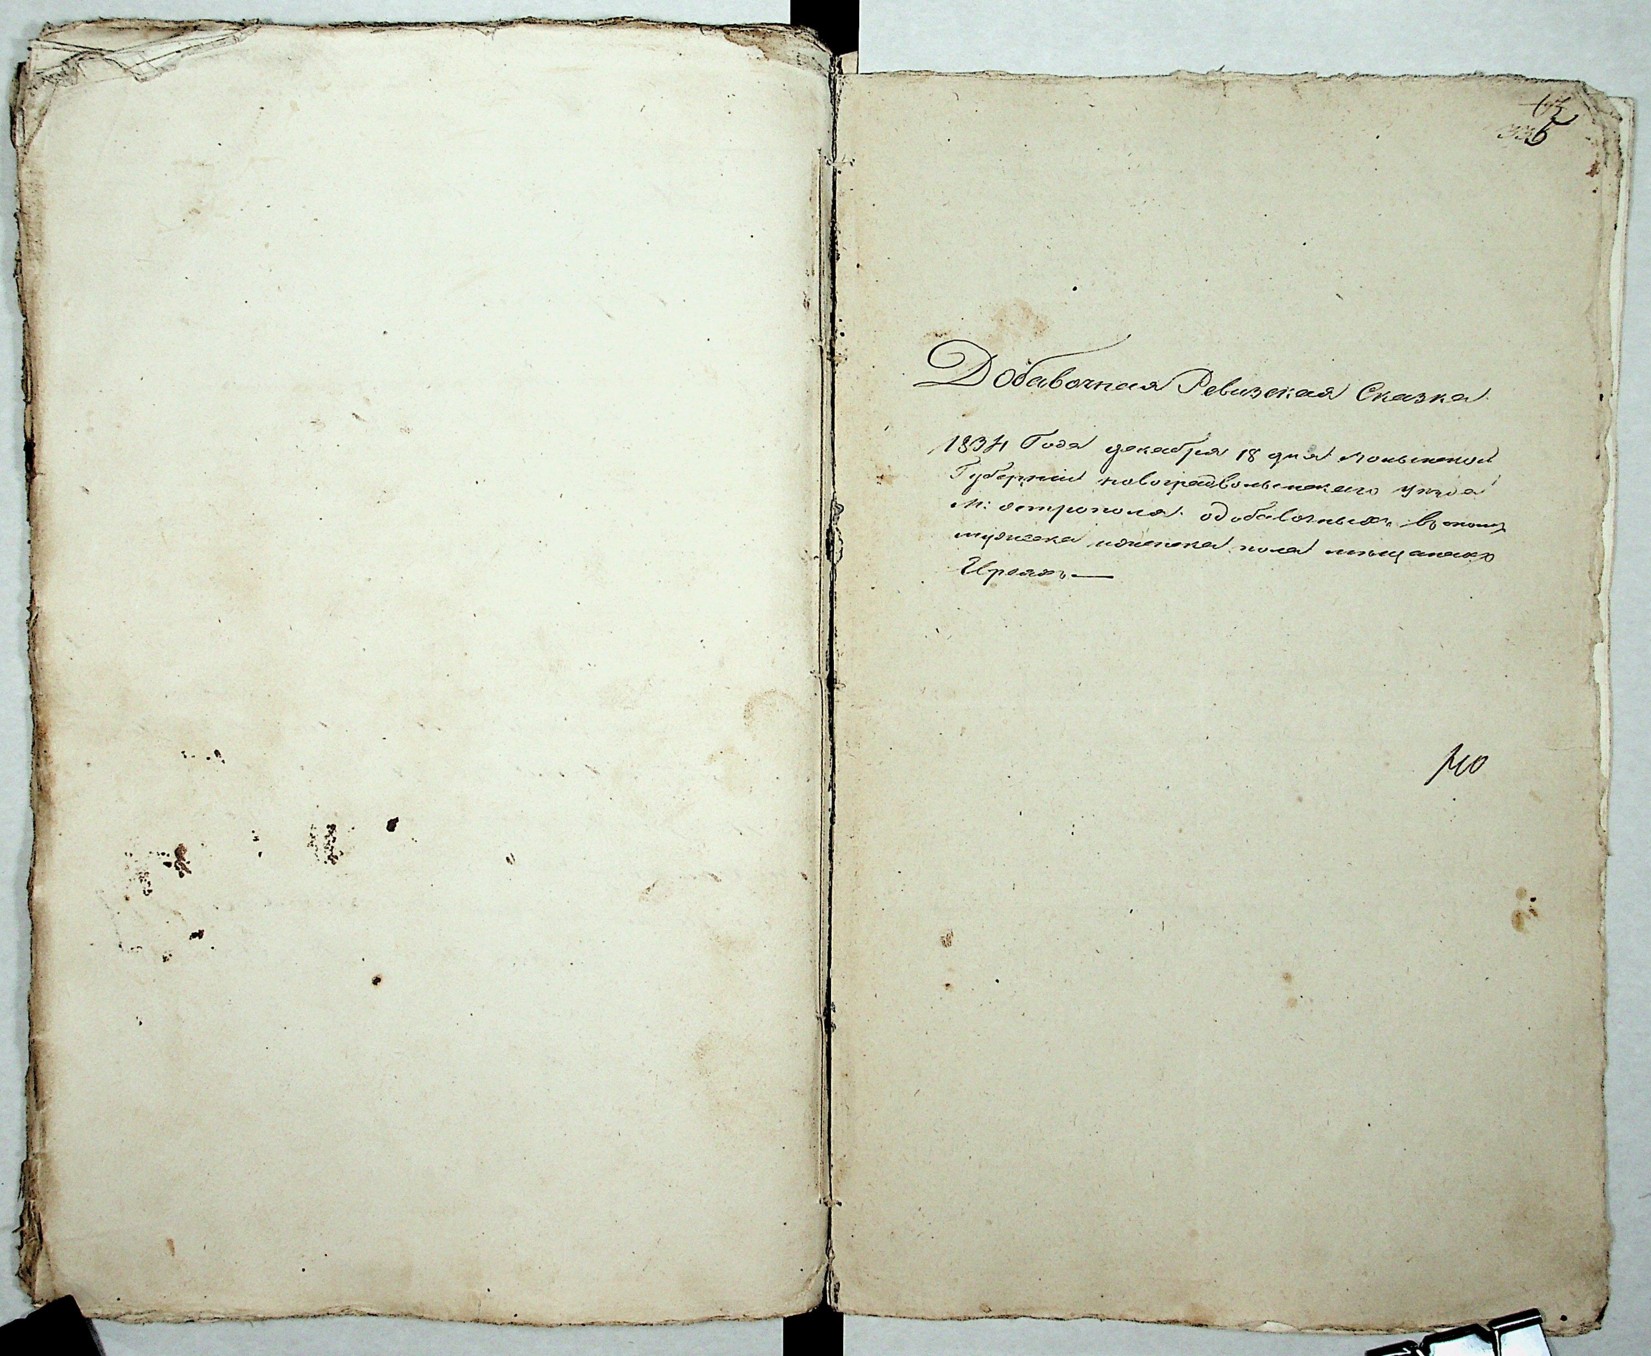 Добавочная Ревизская Сказка
1834 Года декабря 18 дня Волынской
Губернии новоградволынскаго уезда
М: острополя о добавочныхъ въ оному
мужеска и женска пола мещанахъ
Евреяхъ —